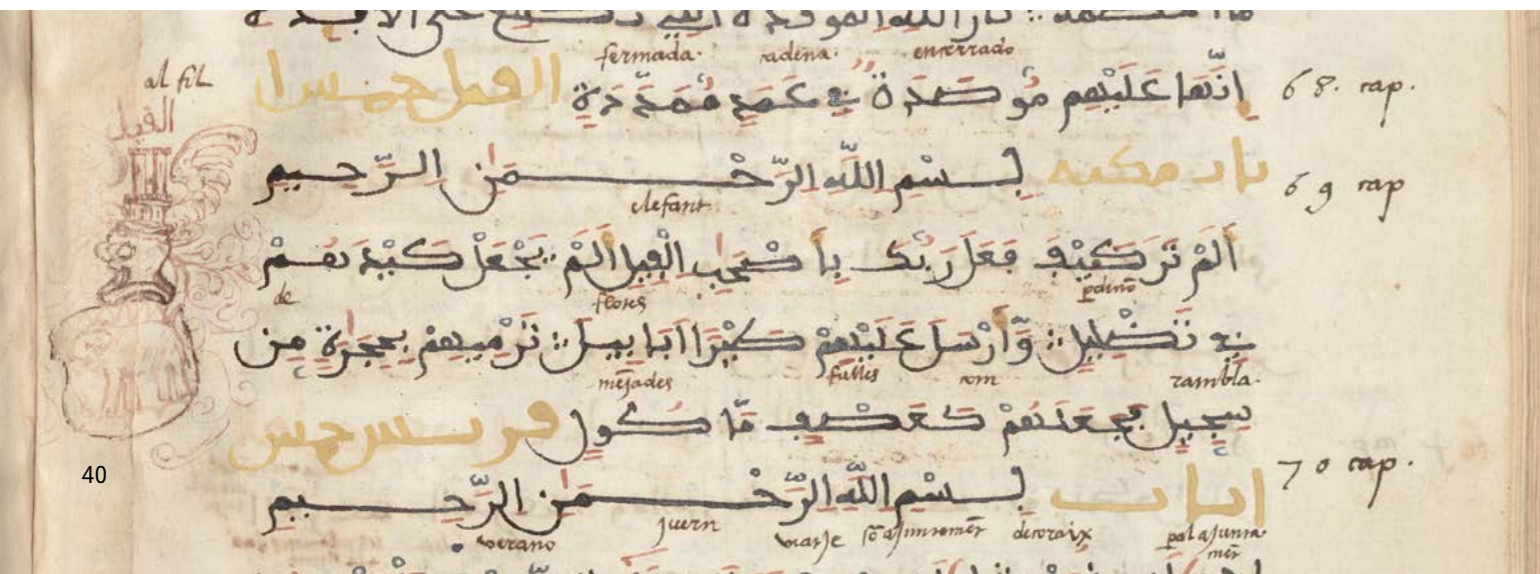 نار الله الموقدة التي تطلع على الأفئدة
fermada. cadena. encerrado
إِنَّهَا عَلَيْهِم مُّوصَدَةٌ فِي عَمَدٍ مُّمَدَّدَةٍ الفيل خمس ا
68. cap.
al fil
الفيل
يات مكية بِسْمِ اللَّهِ الرَّحْمَٰنِ الرَّحِيمِ
69 cap
elefant.
أَلَمْ تَرَ كَيْفَ فَعَلَ رَبُّكَ بِأَصْحَٰبِ الْفِيلِ أَلَمْ يَجْعَلْ كَيْدَهُمْ
de flores perdino
فِي تَضْلِيلٍ وَأَرْسَلَ عَلَيْهِمْ طَيْرًا أَبَابِيلَ تَرْمِيهِم بِحِجَارَةٍ مِّن
mējades fulles com rambla.
سِجِّيلٍ فَجَعَلَهُمْ كَعَصْفٍ مَّأْكُولٍ قريش خمس
40
ايات بِسْمِ اللَّهِ الرَّحْمَٰنِ الرَّحِيمِ
70 cap.
verano juern viatje decoraix